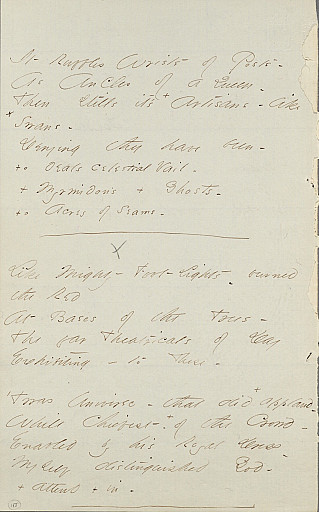 It Ruffles Wrists of Posts -
As Ancles of a Queen -
Then stills it's + Artisans - like
+ Swans -
Denying they have been -
+ Deals celestial Vail -
+ Myrmidons + Ghosts -
+ Acres of Seams -
X
Like Mighty - Foot Lights - burned
the Red
At Bases of the Trees -
The far Theatricals of Day
Exhibiting - to These -
'Twas Universe - that did + applaud -
While Chiefest - of the Crowd -
Enabled by his Royal Dress -
Myself distinguished God -
+ attend + in -